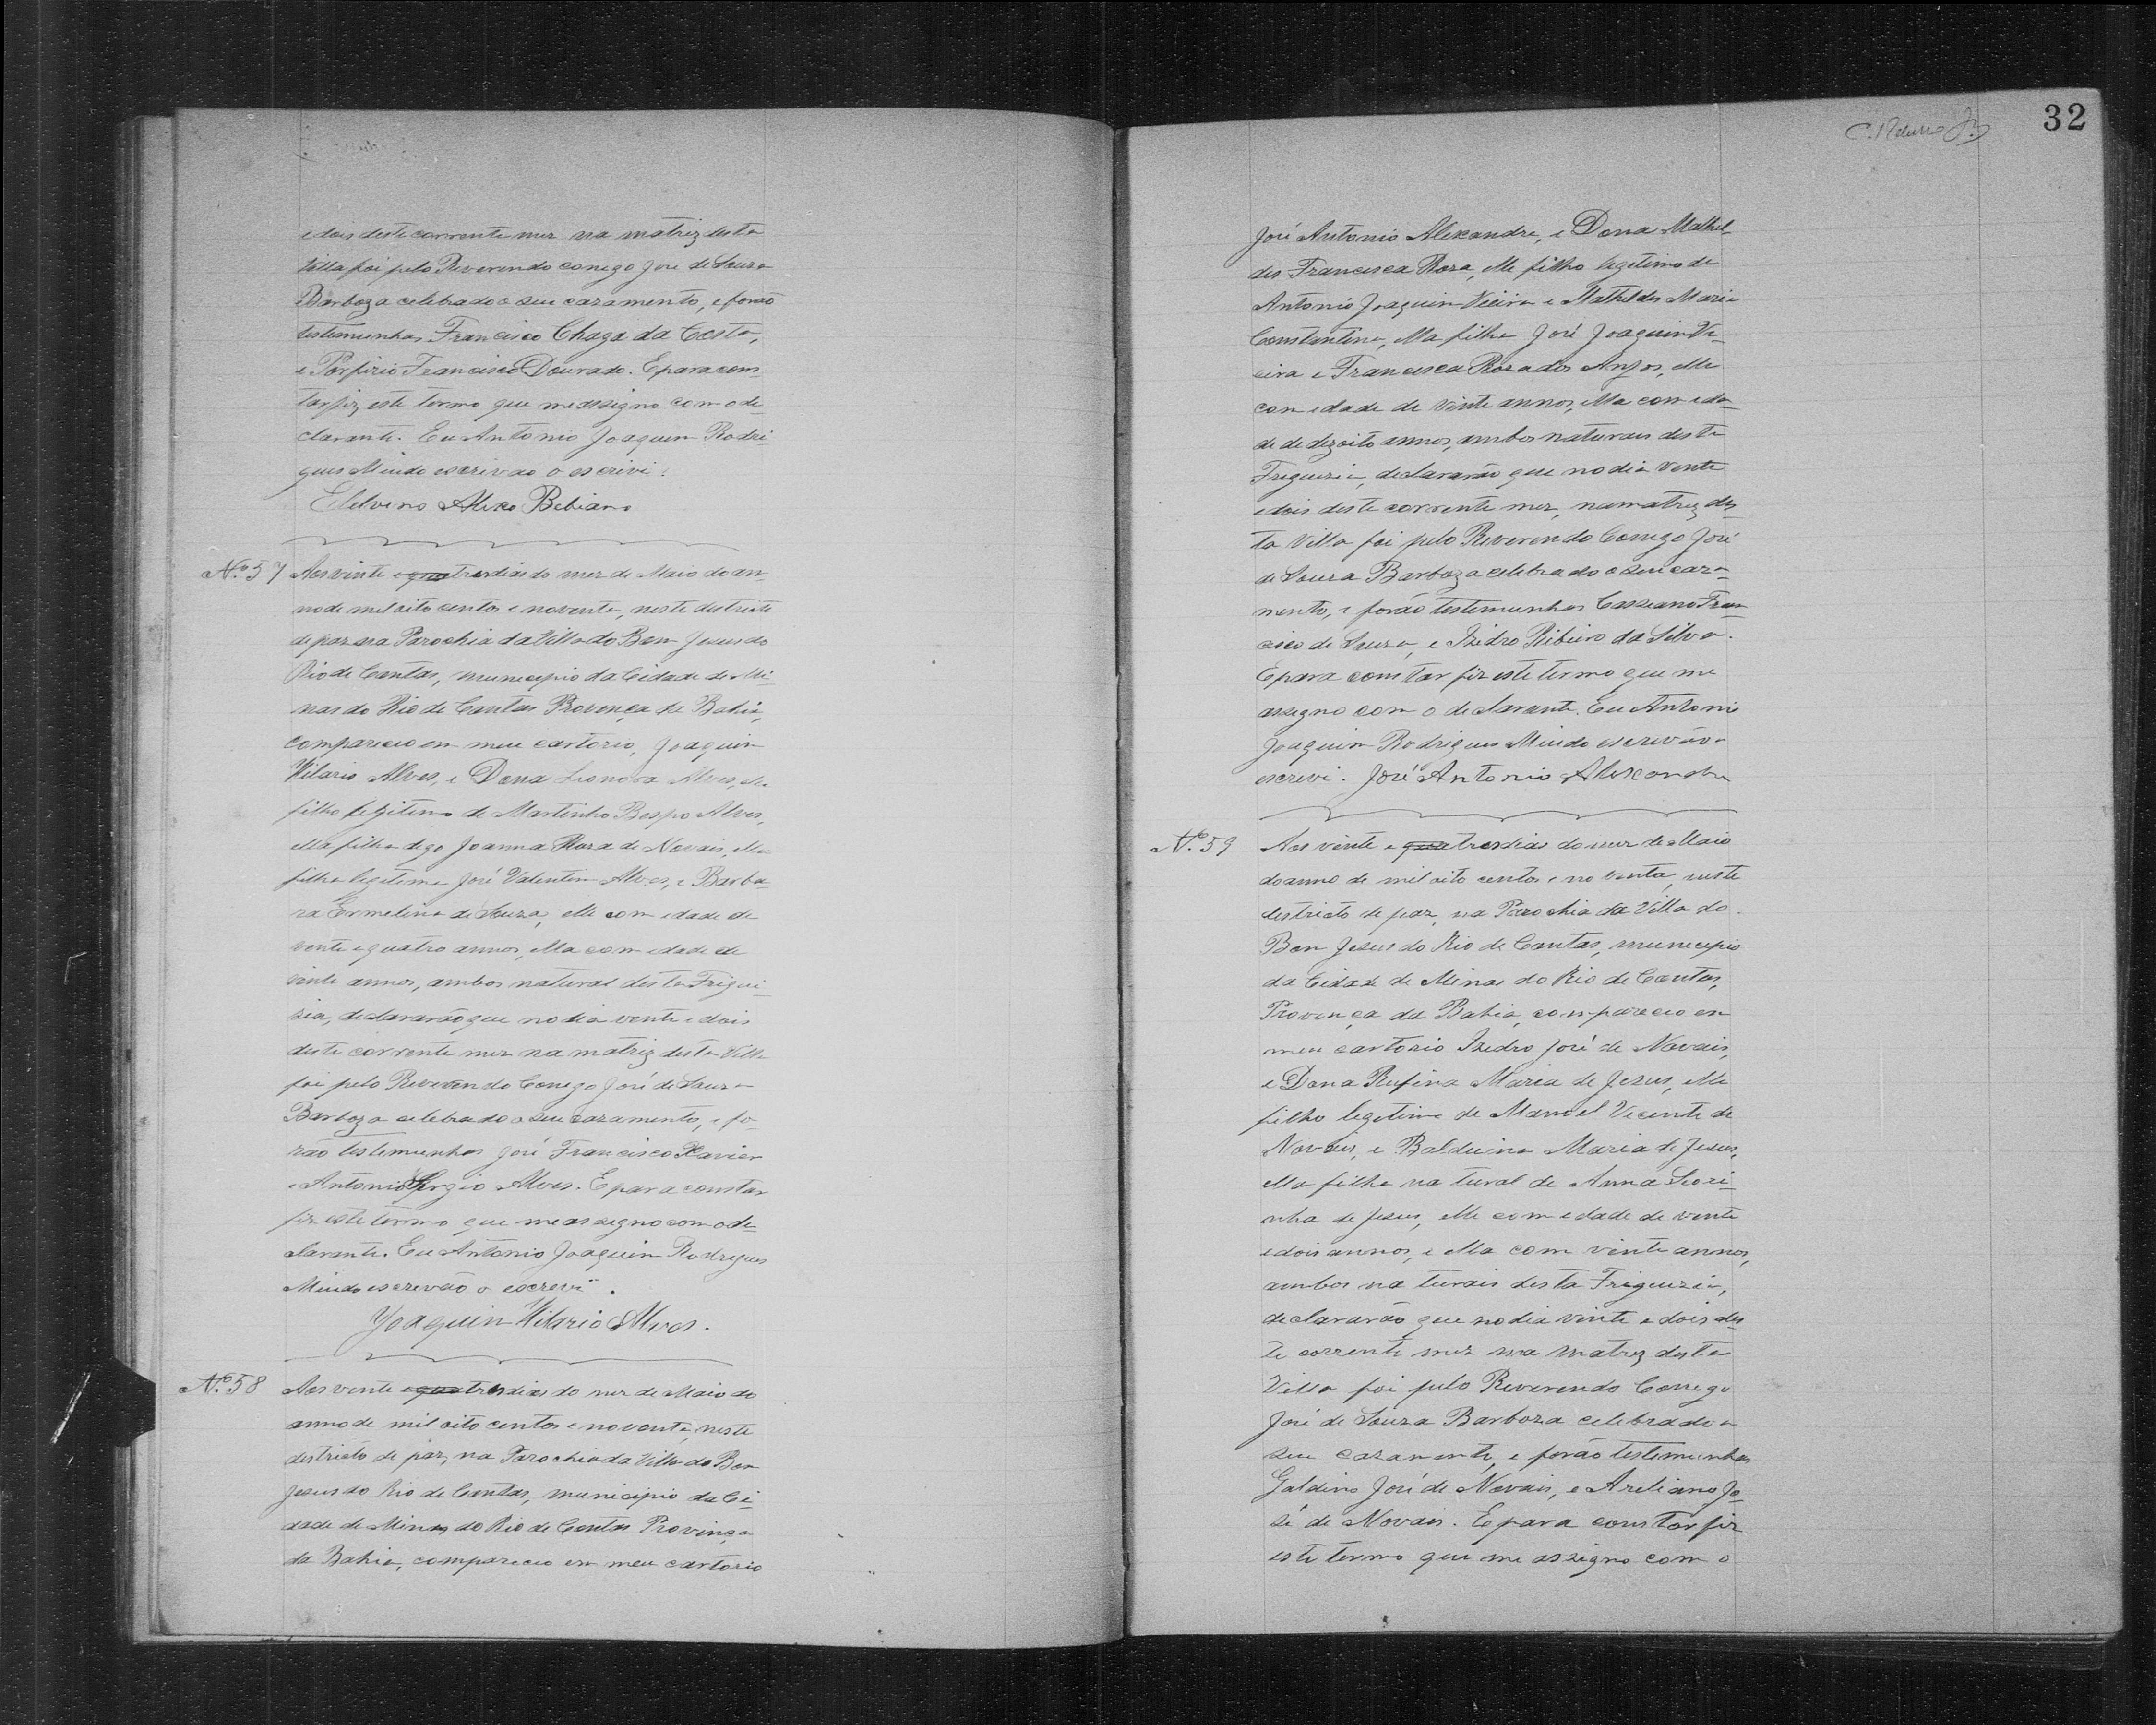 e dois deste corrente mez na matriz desta
Villa foi pelo Reverendo conego José de Souza
Barboza celebrado o seu cazamento, e forão
testemunhas Francisco Chaga da Costa,
e Porfirio Francisco Dourado. E para cons
tar fiz este termo que me assigno com o de
clarante. Eu Antonio Joaquim Rodri
gues Miudo escrivão o escrevi.
Aleixo Bibiano
Nº 57 Aos vinte e tres dias do mez de Maio do an-
no de mil oito centos e noventa, neste destricto
de paz na Parochia da Villa do Bom Jesus do
Rio de Contas, municipio da Cidade de Mi-
nas do Rio de Contas Provença da Bahia,
compareceo em meu cartorio, Joaquim
Hilario Alves, e Dona Leonora Alves, elle
filho legitimo de Martinho Bispo Alves,
Joanna Roza de Novais, ella
filha legitima José Valentim Alves, e Barba-
ra Ermelina de Souza, elle com edade de
vente e quatro annos, ella com edade de
vinte annos, ambos natural desta Frigui-
zia, declararão que no dia vente e dois
deste corrente mez na matriz desta Villa
foi pelo Reverendo Conego José de Souza
Barboza celebrado o seu cazamento, e fo-
rão testemunhas José Francisco Xavier
e Antonio Sergio Alves. E para constar
fiz este termo que me assegno com o de
clarante. Eu Antonio Joaquim Rodrigues
Miudo escrevão o escrevi.
Joaquim Hilario Alves.
Nº 58 Aos vente e tres dias do mez de Maio do
anno de mil oito centos e noventa, neste
destricto de paz, na Parochia da Villa do Bom
Jesus do Rio de Contas, municipio da Ci-
dade de Minas do Rio de Contas Provinça
da Bahia, compareceo em meu cartorio
32
José Antonio Alexandre, e Dona Mathil-
des Francisca Roza, elle filho legetimo de
Antonio Joaquim Vieira e Mathildes Maria
Constantina, ella filha José Joaquim Vi-
eira e Francisca Roza dos Anjos, elle
com edade de vinte annos, ella com eda-
de de dezoito annos, ambos naturais desta
Freguezia, declararão que no dia vente
e dois deste corrente mez, na matriz des-
ta Villa foi pelo Reverendo Conego José
de Souza Barboza celebrado o seu caza-
mento, e forão testemunhas Cassiano Fran
cisco de Souza, e Izidro Ribeiro da Silva.
E para constar fiz este termo que me
assegno com o declarante. Eu Antonio
Joaquim Rodrigues Miudo escrevão o
escrevi. José Antonio Alexandre
Nº 59 Aos vinte e tres dias do mez de Maio
do anno de mil oito centos e noventa, neste
destricto de paz, na Parochia da Villa do
Bom Jesus do Rio de Contas, municipio
da Cidade de Minas do Rio de Contas,
Provença da Bahia, compareceo em
meu cartorio Izedro José de Novais,
e Dona Rufina Maria de Jesus, elle
filho legetimo de Manoel Vicente de
Novais, e Balduina Maria de Jesus,
ella filha natural de Anna
de Jesus, elle com edade de vente
e dois annos, e ella com vinte annos,
ambos naturais desta Freguezia,
declararão que no dia vinte e dois des
te corrente mez na matriz desta
Villa foi pelo Reverendo Conego
José de Souza Barboza celebrado o
seu cazamento, e forão testemunhas
Galdino José de Novais, e Areliano Jo-
sé de Novais. E para constar fiz
este termo que me assigno com o